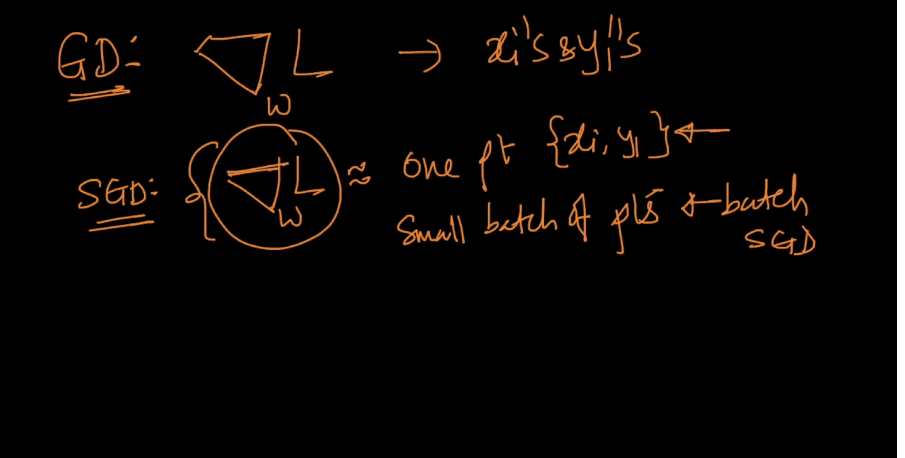 GD:- ∇_W L → xi's & yi's
SGD:- { ∇_W L ≈ one pt {xi, yi} ←
small batch of pts ← batch
SGD